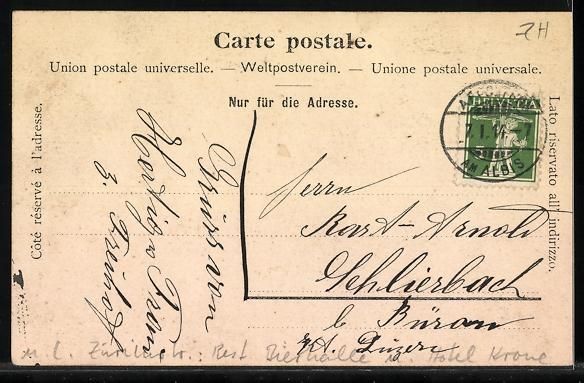 ZH
Carte postale.
Union postale universelle. — Weltpostverein. — Unione postale universale.
Nur für die Adresse.
Côté réservé à l'adresse.
Lato riservato all' indirizzo.
HELVETIA
7. I. 14. -7
AM ALBIS
Gruss von
Hertig & Frau
z.
Herrn
Karl Arnold
Schlierbach
b Büron
Kt. Luzern
Rest. Bierhalle u. Hotel Krone